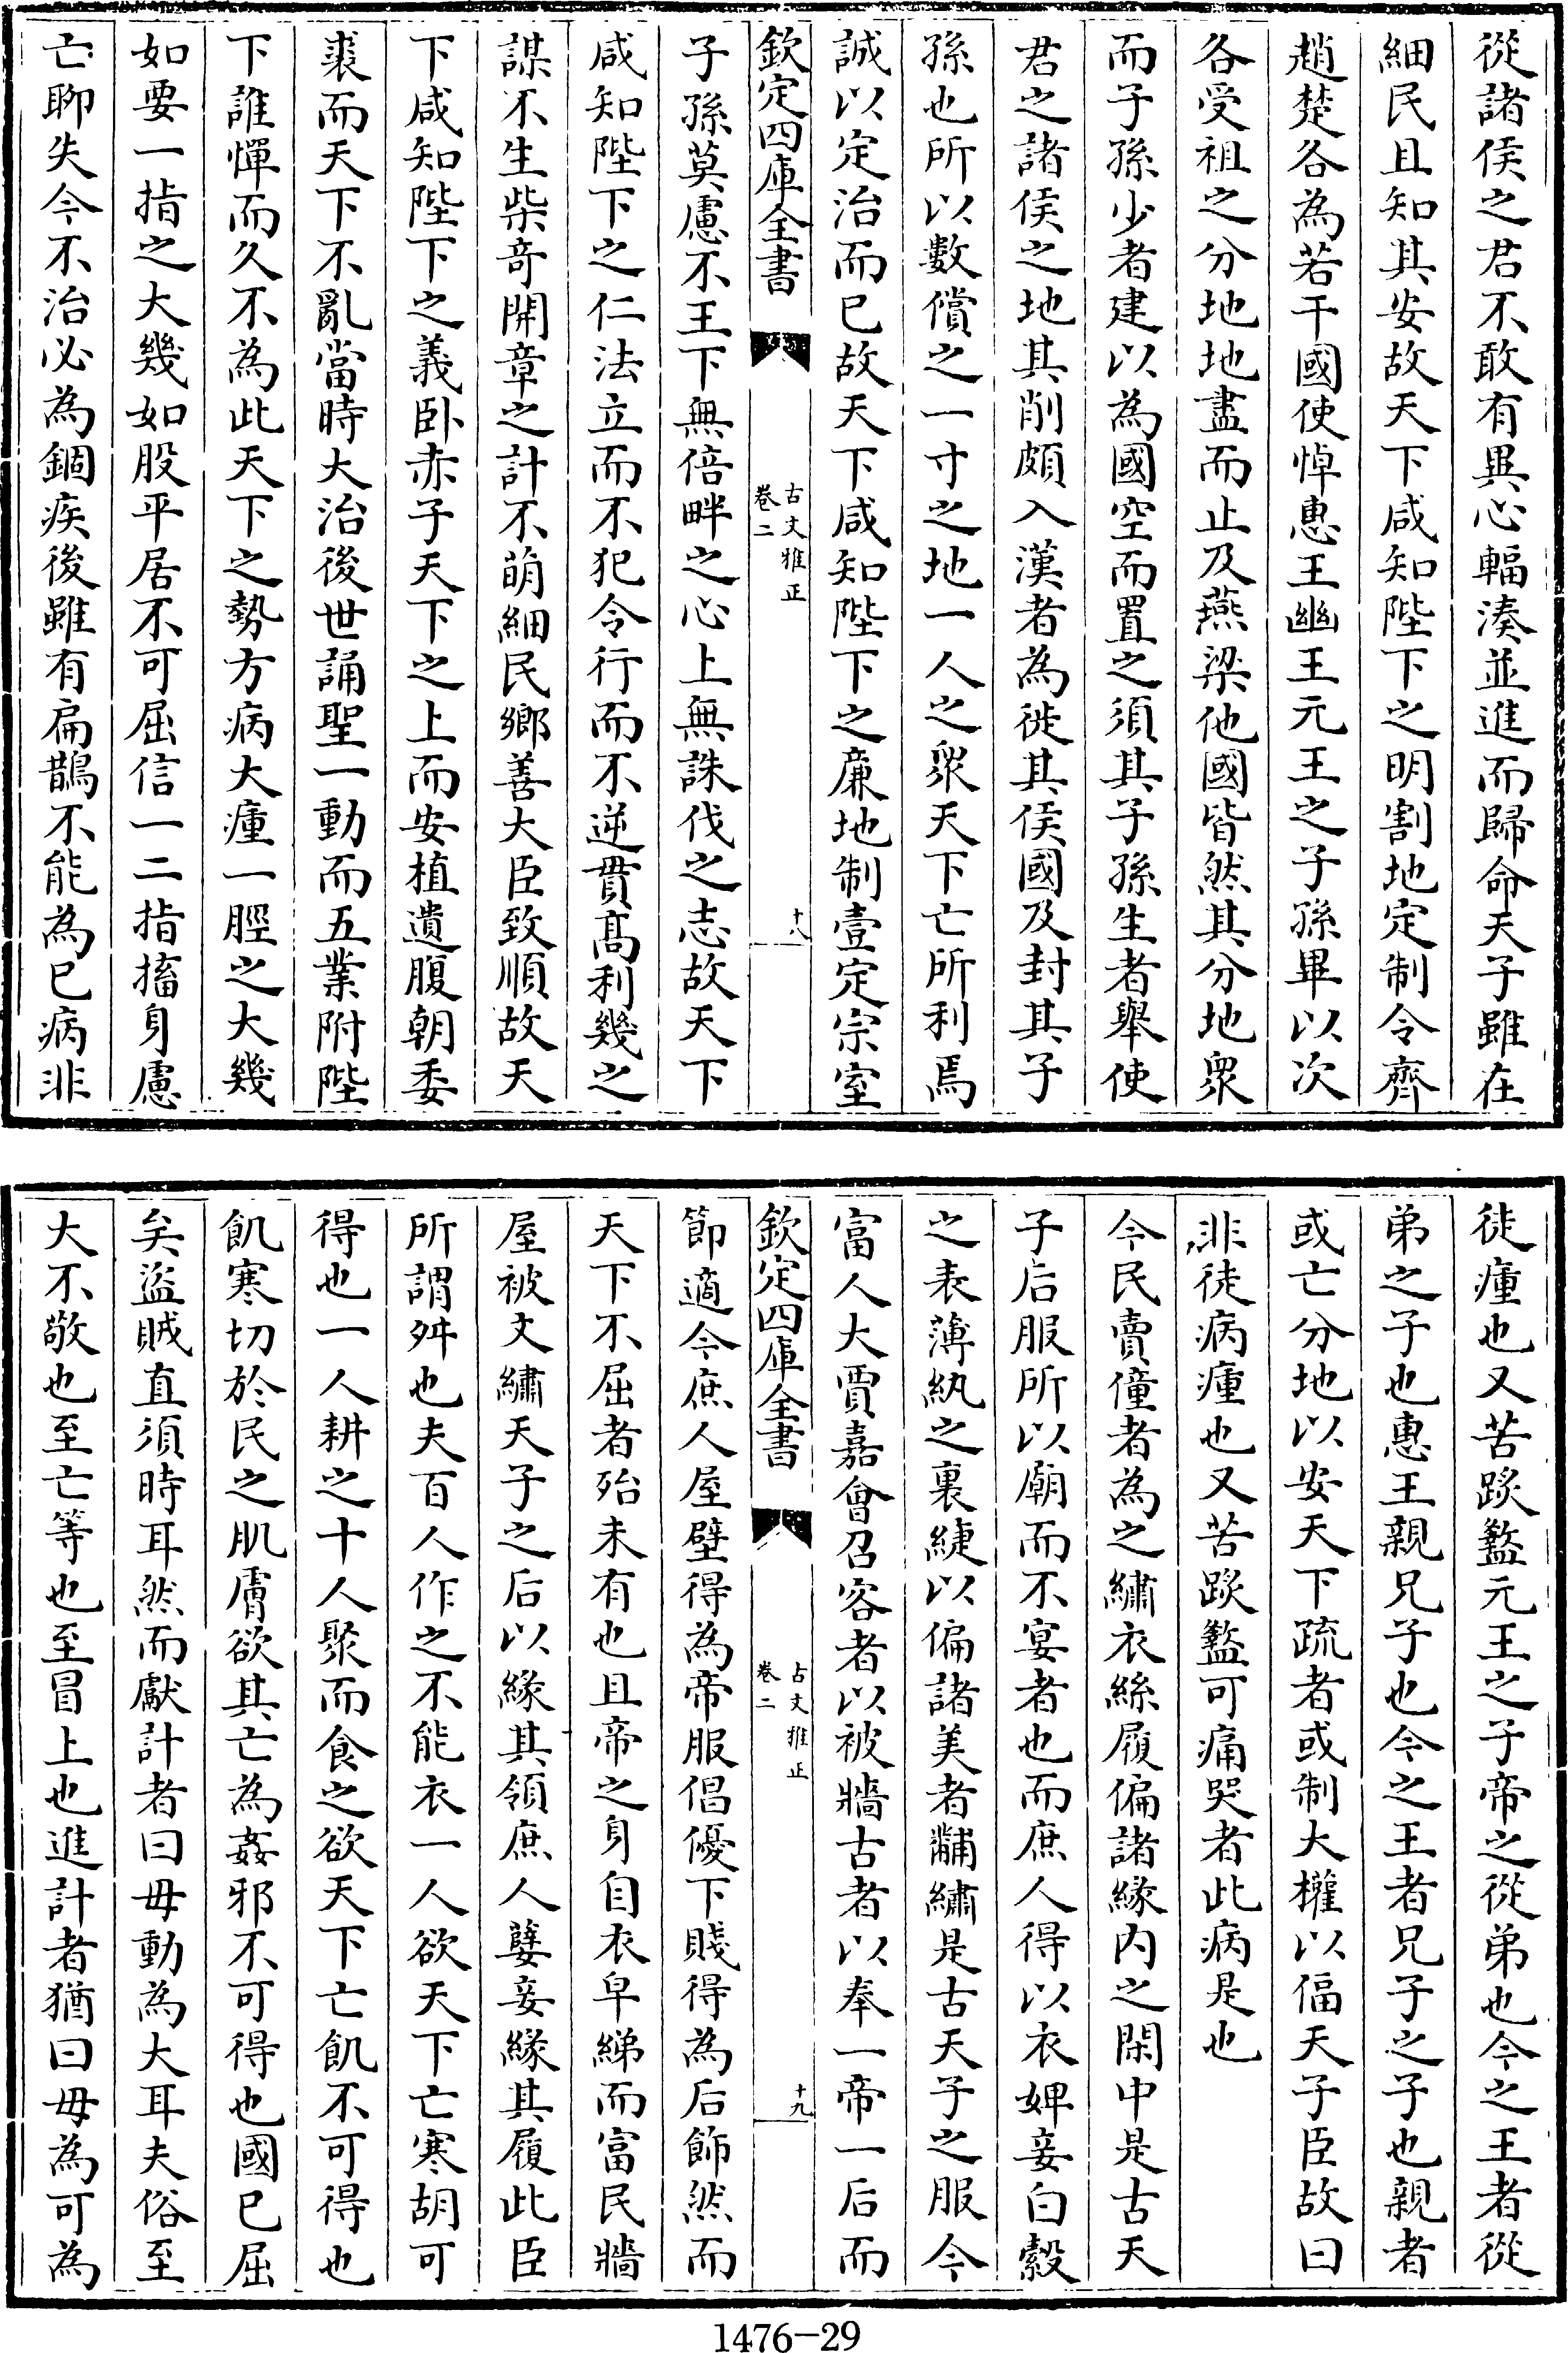 從諸侯之君不敢有異心輻湊並進而歸命天子雖在
細民且知其安故天下咸知陛下之明割地定制令齊
趙楚各為若干國使悼惠王幽王元王之子孫畢以次
各受祖之分地地盡而止及燕梁他國皆然其分地衆
而子孫少者建以為國空而置之須其子孫生者舉使
君之諸侯之地其削頗入漢者為徙其侯國及封其子
孫也所以數償之一寸之地一人之衆天下亡所利焉
誠以定治而已故天下咸知陛下之廉地制壹定宗室
欽定四庫全書
古文雅正
卷二
十八
子孫莫慮不王下無倍畔之心上無誅伐之志故天下
咸知陛下之仁法立而不犯令行而不逆貫髙利幾之
謀不生柴竒開章之計不萌細民鄉善大臣致順故天
下咸知陛下之義卧赤子天下之上而安植遺腹朝委
裘而天下不亂當時大治後世誦聖一動而五業附陛
下誰憚而久不為此天下之勢方病大瘇一脛之大幾
如要一指之大幾如股平居不可屈信一二指搐身慮
亡聊失今不治必為錮疾後雖有扁鵲不能為已病非
徒瘇也又苦䟐盭元王之子帝之從弟也今之王者從
弟之子也惠王親兄子也今之王者兄子之子也親者
或亡分地以安天下疏者或制大權以偪天子臣故曰
非徒病瘇也又苦䟐盭可痛哭者此病是也
今民賣僮者為之繡衣絲履偏諸緣内之閑中是古天
子后服所以廟而不宴者也而庶人得以衣婢妾白縠
之表薄紈之裏緁以偏諸美者黼繡是古天子之服今
富人大賈嘉會召客者以被牆古者以奉一帝一后而
欽定四庫全書
古文雅正
卷二
十九
節適今庶人屋壁得為帝服倡優下賤得為后飾然而
天下不屈者殆未有也且帝之身自衣皁綈而富民牆
屋被文繡天子之后以緣其領庶人孽妾緣其履此臣
所謂舛也夫百人作之不能衣一人欲天下亡寒胡可
得也一人耕之十人聚而食之欲天下亡飢不可得也
飢寒切於民之肌膚欲其亡為姦邪不可得也國已屈
矣盜賊直須時耳然而獻計者曰毋動為大耳夫俗至
大不敬也至亡等也至冒上也進計者猶曰毋為可為
1476-29